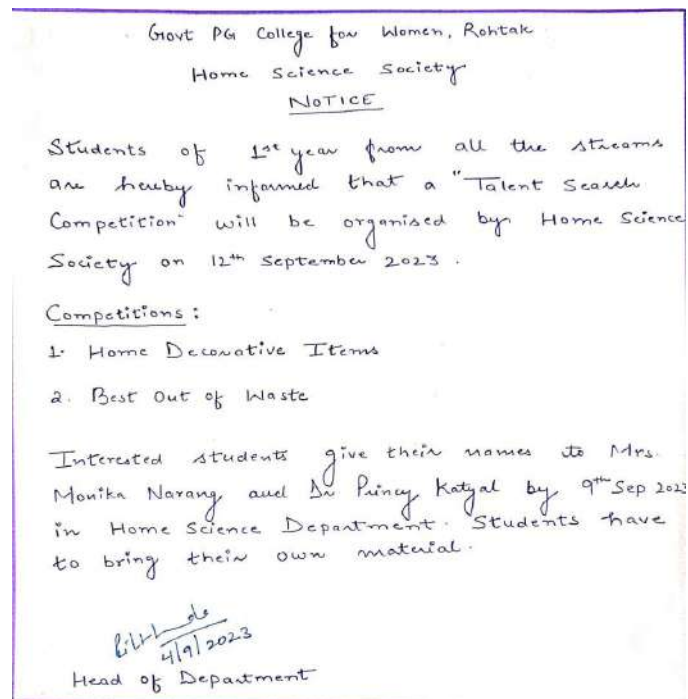 Govt PG College for Women, Rohtak
Home Science Society
NOTICE
Students of 1st year from all the streams
are hereby informed that a "Talent Search
Competition" will be organised by Home Science
Society on 12th September 2023.
Competitions:
1. Home Decorative Items
2. Best Out of Waste
Interested students give their names to Mrs.
Monika Narang and Dr Princy Katyal by 9th Sep 2023
in Home Science Department. Students have
to bring their own material.
4/9/2023
Head of Department